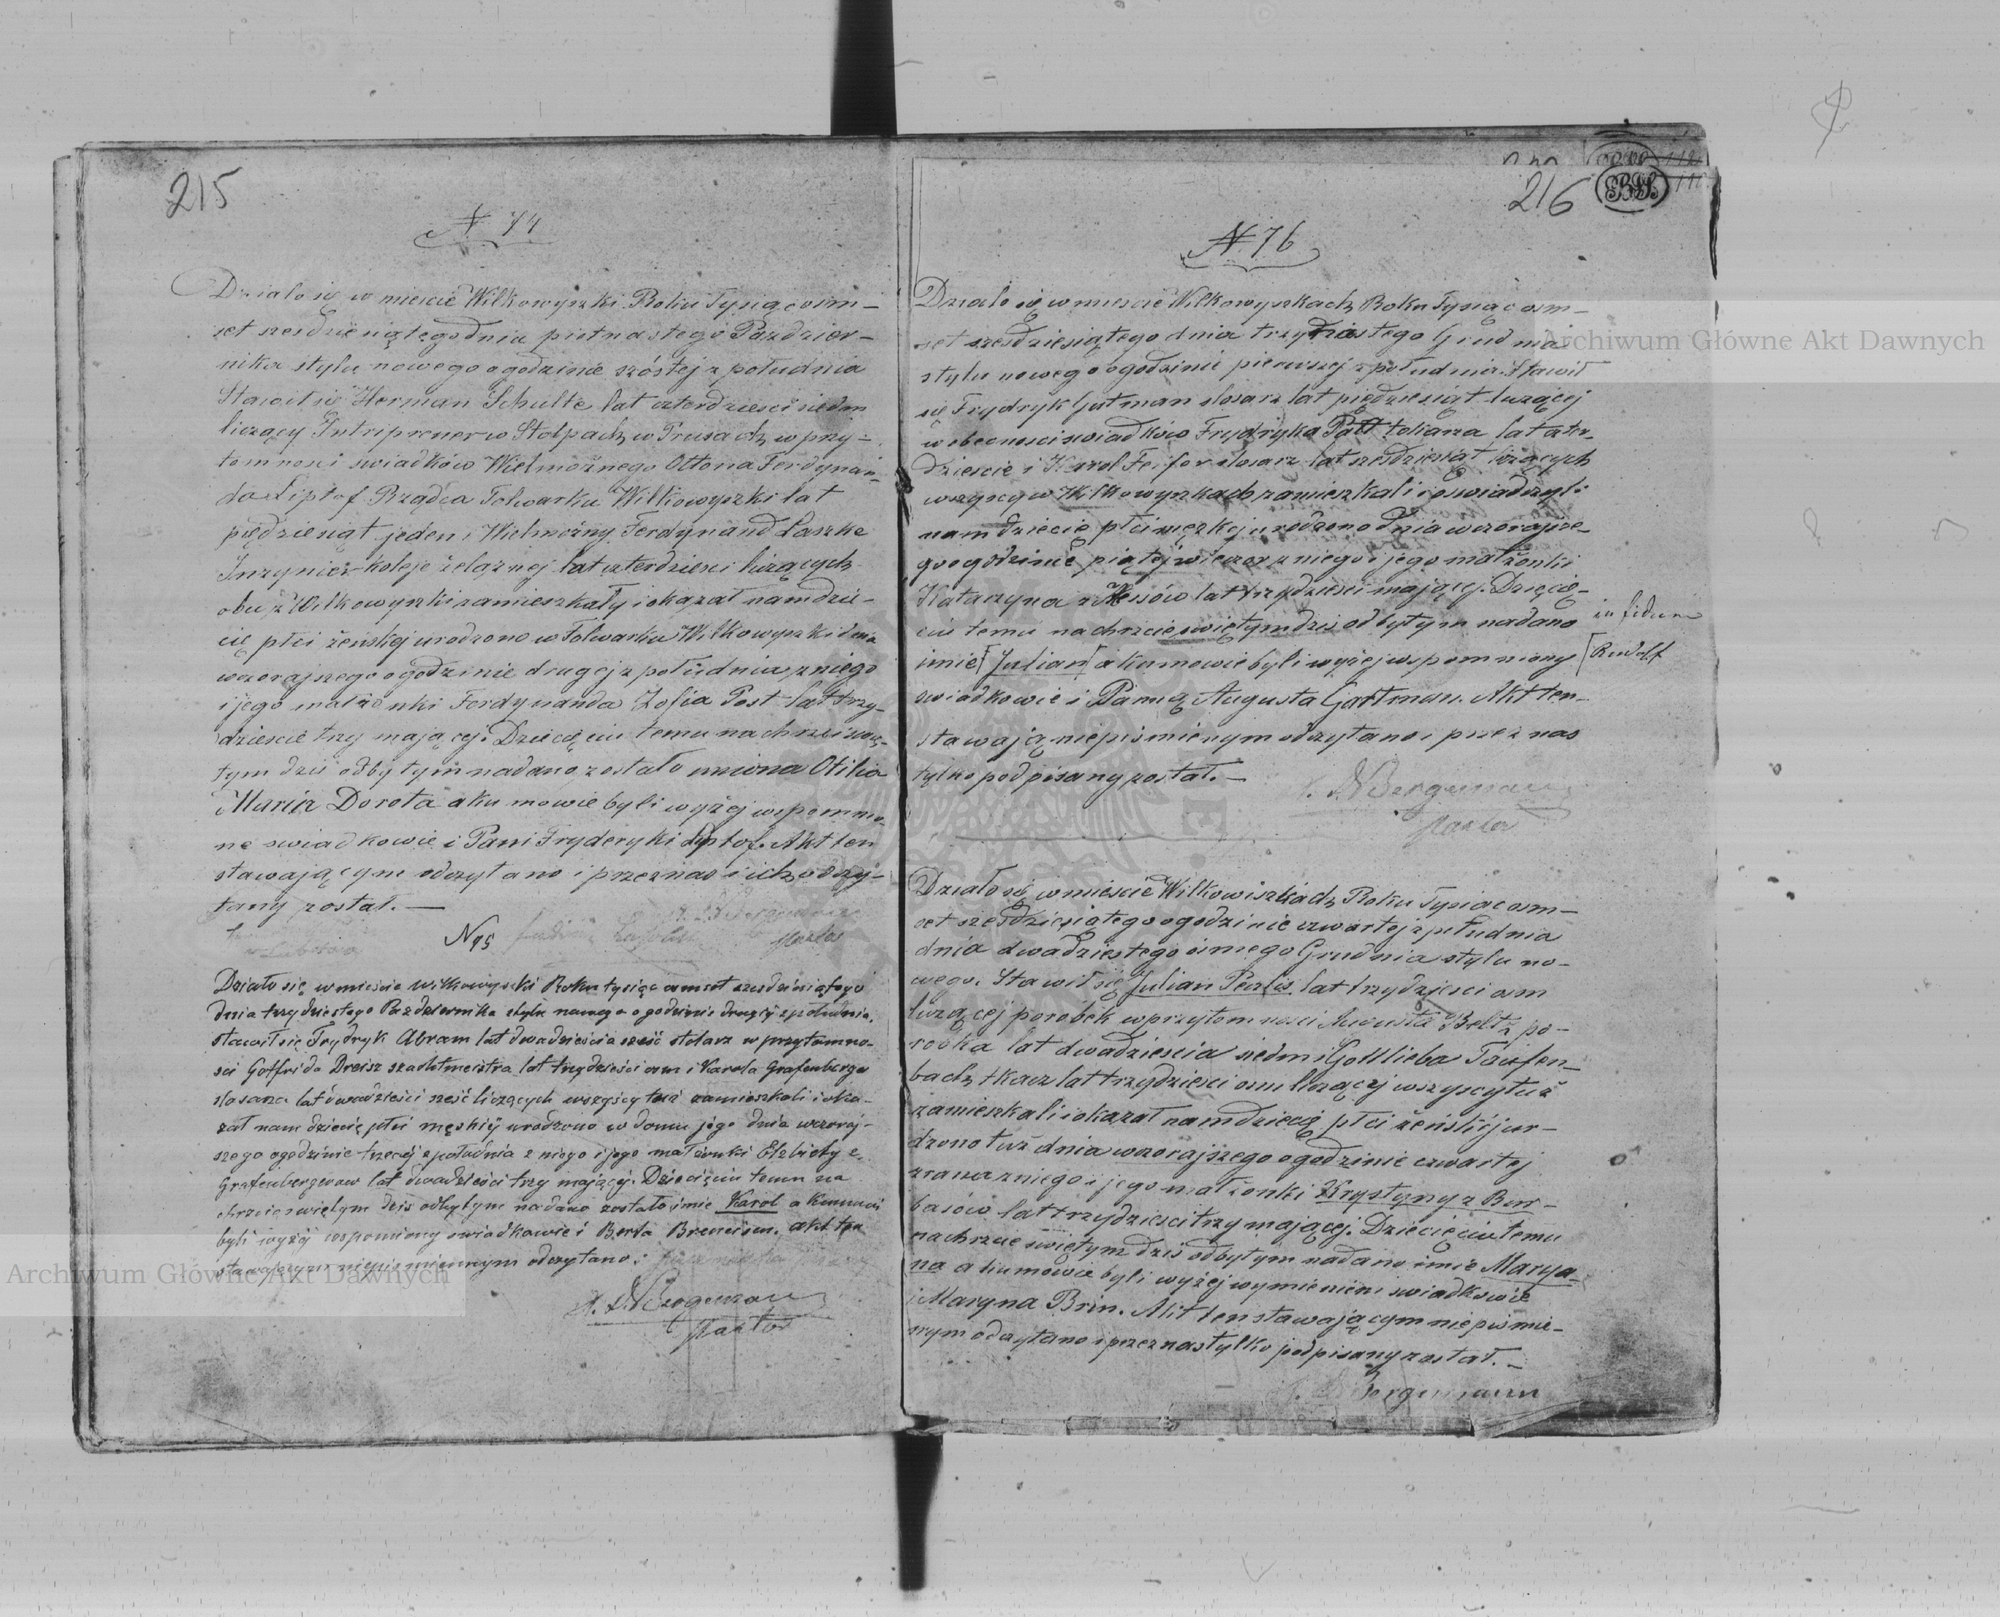 215
N 74
Działo się w miescie Wilkowyszki Roku Tysiąc ośm-
set szesdziesiątego dnia pietnastego Pazdzier-
nika stylu nowego o godzinie szóstej z południa
Stawił się Herman Schulte lat czterdziesci siedm
liczący Intriprener w Stolpach w Prusach w przy-
tomnosci swiadków Wielmożnego Ottona Ferdynan-
da Liptof Rządca Folwarku Wilkowyszki lat
pięddziesiąt jeden i Wielmożny Ferdynand Laszke
Inzynier koleje żelaznej lat czterdziesci liczących
obu z Wilkowyszki zamieszkały i okazał nam dzie-
cię płci żeńskej urodzone w Folwarku Wilkowyszki dnia
wczorajszego o godzinie drugej z południa z niego
i jego małżonki Ferdynanda Zofia Post lat trzy-
dziescie trzy mającej. Dziecięciu temu na chrzcie swię-
tym dziś odbytym nadano zostało imiona Otilia
Maria Dorota a kumowie byli wyżej wspomnio-
ne swiadkowie i Pani Fryderyki Liptof. Akt ten
stawającym odczytano i przez nas i ich odczy-
tany został. —
N 75
Pastor
Działo się w miescie Wilkowyszki Roku tysiąc osmset szesdziesiątego
dnia trzydziestego Pazdziernika stylu nowego o godzinie drugiej z południa.
Stawił się Frydryk Abram lat dwadzieścia sześć stolarz w przytomno-
ści Gotfrida Dreisz szachtmeistra lat trzydzieści osm i Karola Grafenberga
slosarza lat dwadzieści sześć liczących wszyscy tuż zamieszkali i oka-
zał nam dziecię płci męskiej urodzone w domu jego dnia wczoraj-
szego o godzinie trzeciej z południa z niego i jego małżonki Elzbiety z
Grafenbergerow lat dwadzieści trzy mającej. Dziecięciu temu na
chrzcie swiętym dziś odbytym nadano zostało imie Karol a kumowi
byli wyżej wspomniony swiadkowie i Berta Breneisen. akt ten
stawającym niepismiennym odczytano;
A. D. Bergemann
Pastor
216
N. 76
Działo się w miescie Wilkowyszkach Roku Tysiąc osm-
set szesdziesiątego dnia trzydziestego Grudnia
stylu nowego o godzinie pierwszej z południa. Stawił
się Frydryk Gutman slosarz lat pięddziesiąt liczącej
w obecnosci swiadków Frydryka Patt tokarza lat czter-
dziescie i Karol Feifer slosarz lat szesdziesiąt liczących
wszyscy w Wilkowyszkach zamieszkali i oswiadczyli
nam dziecię płci męzkej urodzono dnia wczorajsze-
go o godzinie piątej wieczor z niego i jego małżonki
Katarzyna z Messów lat trzydziesci mającej. Dzięcię-
ciu temu na chrzcie swiętym dzis odbytym nadano
imie [Julian] a kumowie byli wyżej wspomniony
in fidem
[Rudolf
swiadkowie i Panną Augusta Gartman. Akt ten-
stawającą niepismienym odczytano i przez nas
tylko podpisany został. —
A. D. Bergemann
Pastor
Działo się w miescie Wilkowiszkach Roku Tysiąc osm-
set szesdziesiątego o godzinie czwartej z południa
dnia dwadziestego ósmego Grudnia stylu no-
wego. Stawił się Julian Perlis lat trzydziesci osm
liczącej porobek w przytomnosci Augusta Beltz po-
robka lat dwadziescia siedm i Gottlieba Taufen-
bach tkacz lat trzydziesci osm liczącej wszyscy tuż
zamieszkali i okazał nam dziecię płci żeńskiej ur-
dzono tuż dnia wczorajszego o godzinie czwartej
z rana z niego i jego małżonki Krystyny z Bur-
basów lat trzydziesci trzy mającej. Dziecięciu temu
na chrzcie swiętym dziś odbytym nadano imie Marya-
na a kumowie byli wyżej wymienieni swiadkowie
i Maryna Brin. Akt ten stawającym niepismie-
nym odczytano i przez nas tylko podpisany został. —
A. D. Bergemann
Archiwum Główne Akt Dawnych
Archiwum Główne Akt Dawnych